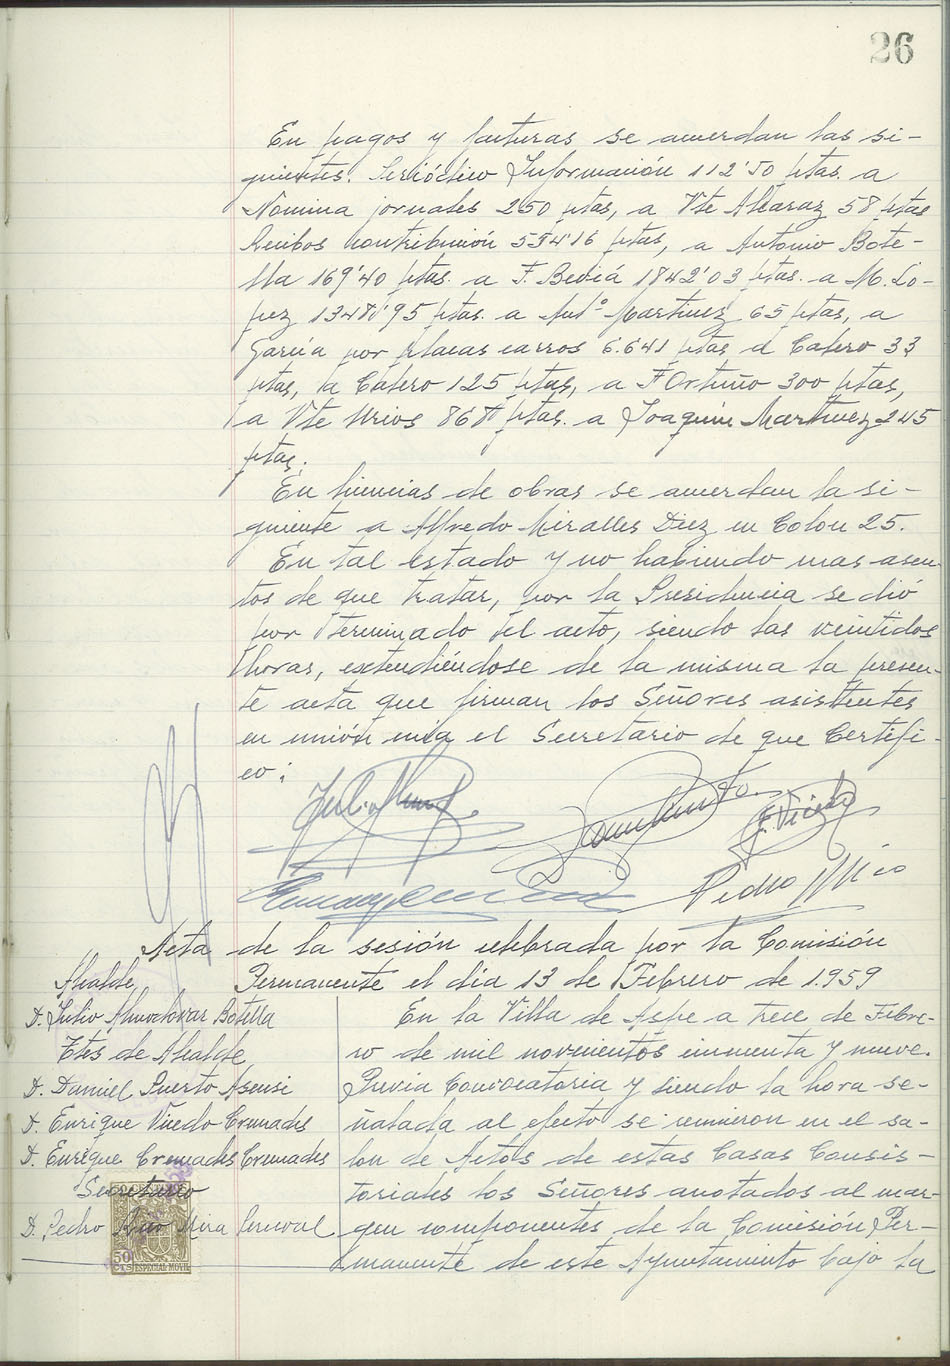 26
En pagos y facturas se acuerdan las si-
guientes. Periódico Información 112'50 ptas. a
Nomina jornales 250 ptas, a Vte Alcaraz 58 ptas
Recibos contribución ptas, a Antonio Bote-
lla 169'40 ptas. a F. Beviá 1842'03 ptas. a M. Ló-
pez ptas. a Antº Martinez 65 ptas, a
García por placas carros 6.641 ptas a Calero 33
ptas, a Calero 125 ptas, a F Ortuño 300 ptas,
a Vte Urios ptas. a Joaquin Martinez 245
ptas.
En licencias de obras se acuerdan la si-
guiente a Alfredo Miralles Diez en Colon 25.
En tal estado y no habiendo mas asun-
tos de que tratar, por la Presidencia se dió
por terminado el acto, siendo las veintidos
horas, extendiéndose de la misma la presen-
te acta que firman los Señores asistentes
en unión el Secretario de que Certifi-
co:
Pedro
Acta de la sesión celebrada por la Comisión
Permanente el día 13 de Febrero de 1.959
Alcalde,
D. Julio Almodovar Botella
Ttes de Alcalde
D. Daniel Puerto Asensi
D. Enrique Vicedo Cremades
D. Enrique Cremades Cremades
Secretario
D. Pedro Mira
50 CENTIMOS
50
CTS
ESPECIAL MOVIL
En la Villa de Aspe a trece de Febre-
ro de mil novecientos cincuenta y nueve.
Previa Convocatoria y siendo la hora se-
ñalada al efecto se reunieron en el sa-
lon de Actos de estas Casas Consis-
toriales los Señores anotados al mar-
gen componentes de la Comisión Per-
manente de este Ayuntamiento bajo la